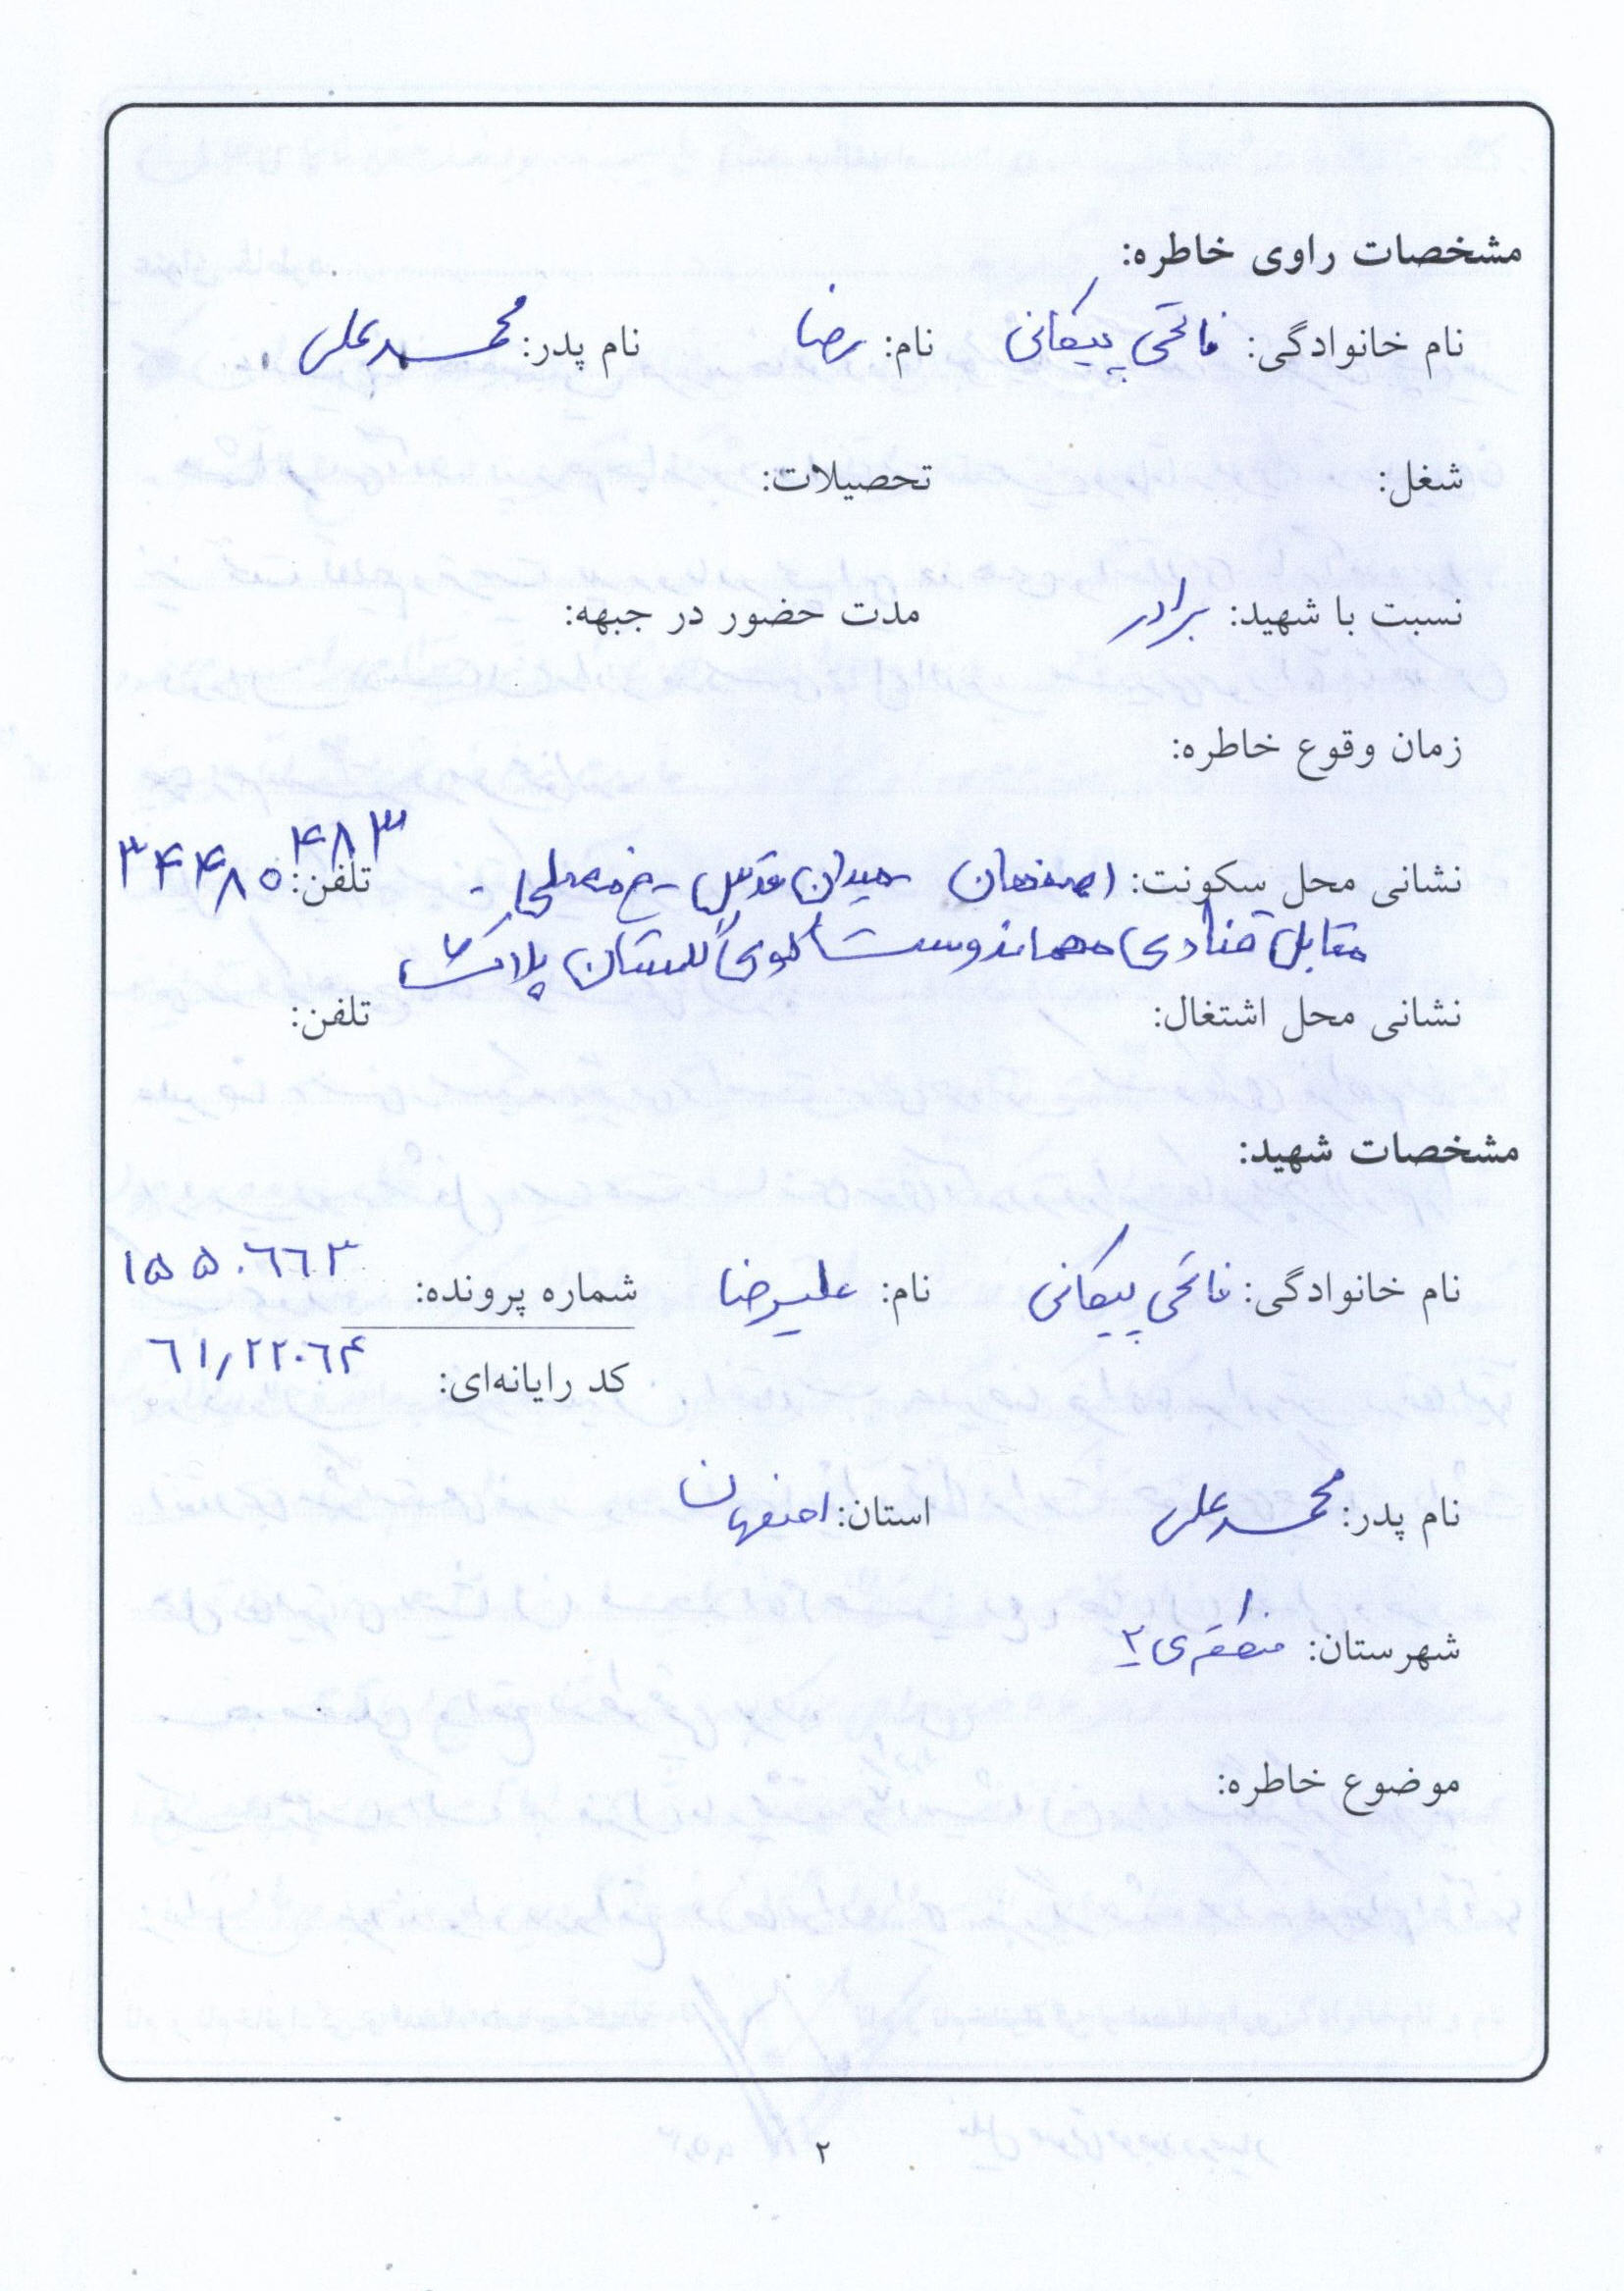 مشخصات راوی خاطره:
نام خانوادگی: فاتحی پیکانی نام: رضا نام پدر: محمدعلی
شغل: تحصیلات:
نسبت با شهید: برادر مدت حضور در جبهه:
زمان وقوع خاطره:
نشانی محل سکونت: اصفهان - میدان قدس - خ مصلی - تلفن: ۳۴۴۸۵۴۸۳
مقابل قنادی مهماندوست کوی گلستان پلاک
نشانی محل اشتغال: تلفن:
مشخصات شهید:
نام خانوادگی: فاتحی پیکانی نام: علیرضا شماره پرونده: ۱۵۵۰۶۶۳
کد رایانه‌ای: ۶۱٫۲۲۰۶۴
نام پدر: محمدعلی استان: اصفهان
شهرستان: منطقه‌ی ۲
موضوع خاطره:
۲